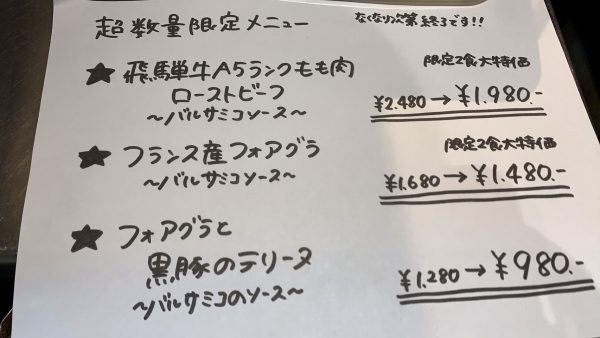 超数量限定メニュー
なくなり次第終了です!!
★飛騨牛A5ランクもも肉
ローストビーフ
〜バルサミコソース〜
限定2食大特価
¥2.480→¥1.980.-
★フランス産フォアグラ
〜バルサミコソース〜
限定2食大特価
¥1.680→¥1.480.-
★フォアグラと
黒豚のテリーヌ
〜バルサミコのソース〜
¥1.280→¥980.-